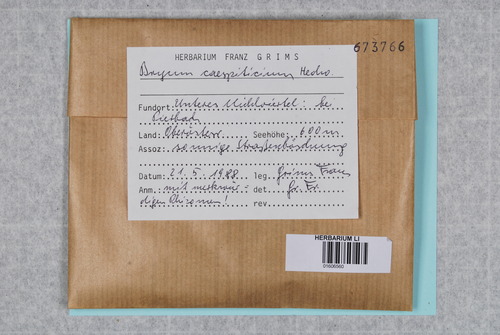 HERBARIUM FRANZ GRIMS
673766
Bryum caespiticium Hedw.
Fundort: Unteres Mühlviertel: be
Land: Oberösterr. Seehöhe: 600 m
Assoz: sonnige Strassenböschung
Datum: 21.5.1988 leg. Grims Franz
Anm. mit merkwür- det. Gr. Fr.
digen Rhizomen! rev.
HERBARIUM LI